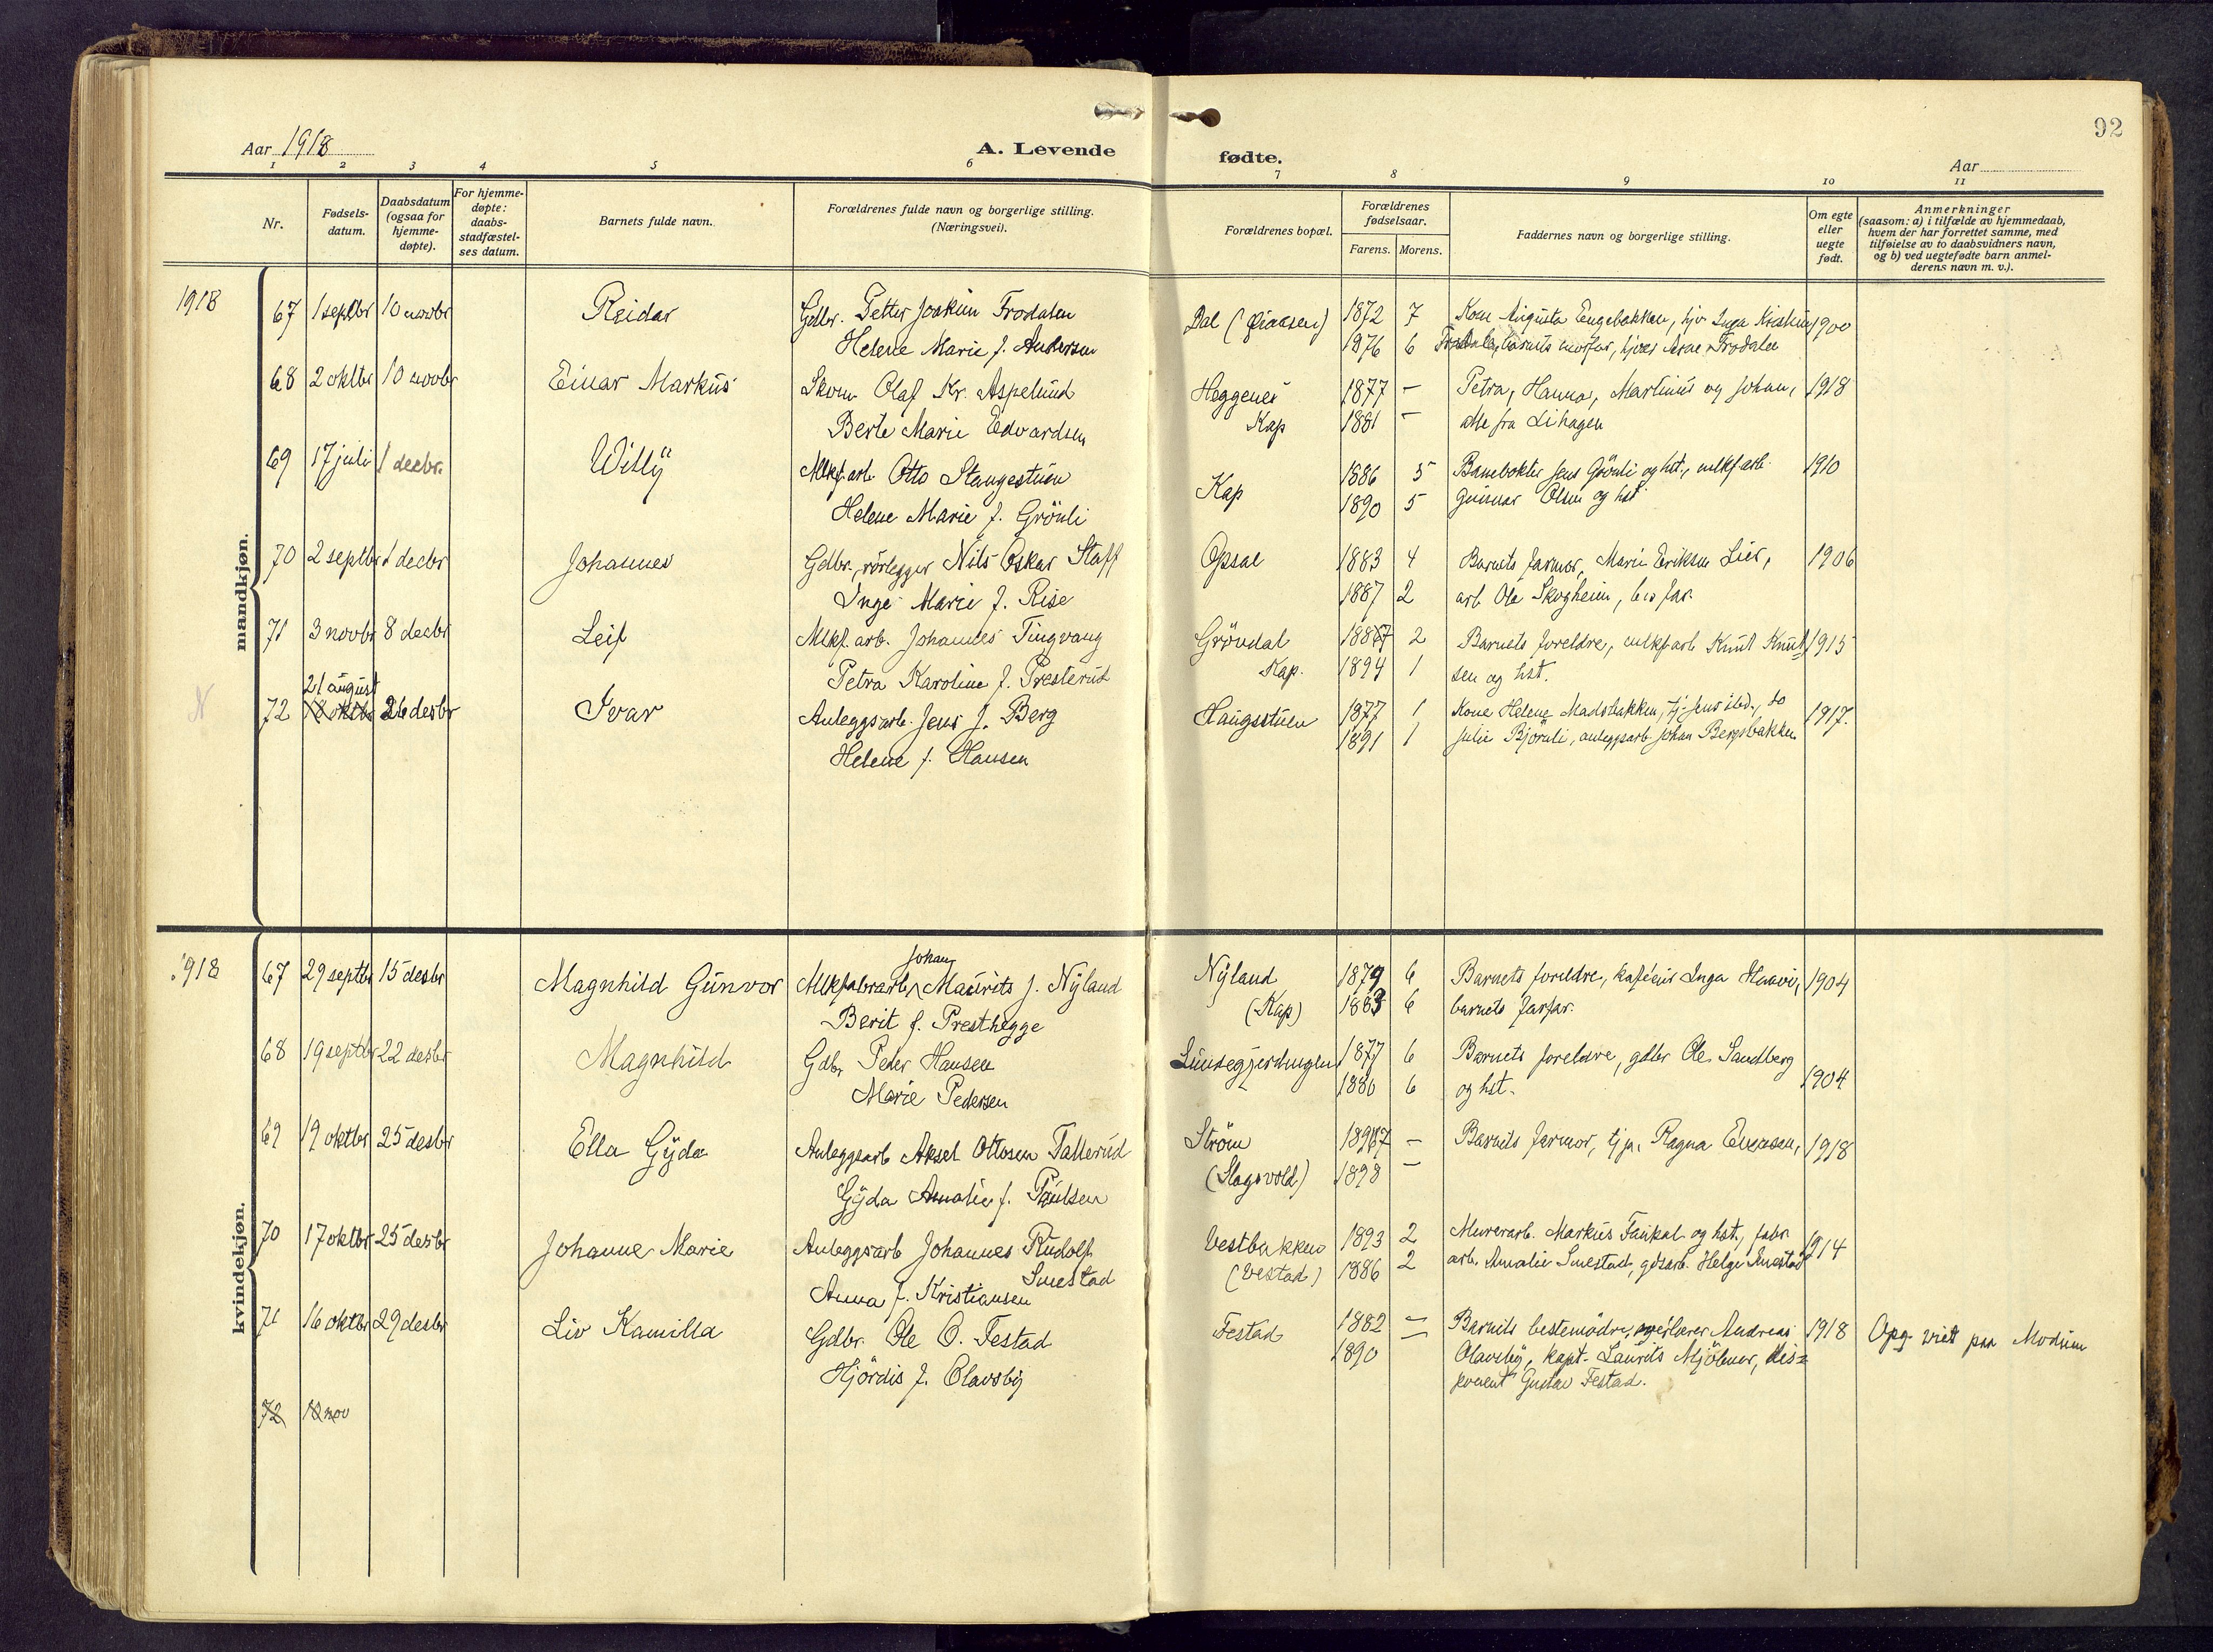 92
Aar 1918
A. Levende
fødte.
Aar
1 2 3 4 5 6 7 8 9 10 11
Nr.
Fødsels-
datum.
Daabsdatum
(ogsaa for
hjemme-
døpte).
For hjemme-
døpte:
daabs-
stadfæstel-
ses datum.
Barnets fulde navn.
Forældrenes fulde navn og borgerlige stilling.
(Næringsvei).
Forældrenes bopæl.
Forældrenes
fødselsaar.
Farens. Morens.
Faddernes navn og borgerlige stilling.
Om egte
eller
uegte
født.
Anmerkninger
(saasom: a) i tilfælde av hjemmedaab,
hvem der har forrettet samme, med
tilføielse av to daabsvidners navn,
og b) ved uegtefødte barn anmel-
derens navn m. v.).
mandkjøn.
1918
67 1 septbr 10 novbr Reidar Gdbr. Petter Joakim Frodalen Dal 1872 7 Kone Augusta Engebakken, hjv Inga Kristine 1900
Helene Marie f. Andersen 1876 6 barnets morfar, Arne Frodalen
68 2 oktbr 10 novbr Einar Markus Skom Olaf Kr. Aspelund Heggenes 1877 – Petra, Hanna, Martinus og Johan, 1918
Berte Marie Edvardsen Kap 1881 – alle fra Lihagen
69 17 juli 1 decbr. Willy Mlkf.arb. Otto Stangestuen Kap 1886 5 Banevokter Jens Grönli og hst., mlkf.arb. 1910
Helene Marie f. Grönli 1890 5 Gunnar Olsen og hst.
70 2 septbr 1 decbr Johannes Gdbr., rörlegger Nils Oskar Staff Opsal 1883 4 Barnets farmor, Marie Eriksen Lier, 1906
Inge Marie f. Rise 1887 2 arb. Ole Skogheim, b.s far.
71 3 novbr 8 decbr Leif Mlkf. arb. Johannes Tingvang Gröndal 1887 2 Barnets foreldre, mlkfarb Knut Knut 1915
Petra Karoline f. Presterud Kap. 1894 1 sen og hst.
21 august
72 18 oktbr 26 desbr Ivar Anleggsarb. Jens J. Berg Haugsstuen 1877 1 Kone Helene Madsbakken, tj. Jens ibid., do 1917.
Helene f. Hansen 1891 1 Julie Björnli, anleggsarb Johan Bergsbakken
kvindekjøn.
1918
Johan
67 29 septbr 15 desbr Magnhild Gunvor Mlkfabrarb. Maurits J. Nyland Nyland 1879 6 Barnets foreldre, Inga Haavi, 1904
Berit f. Presthegge (Kap) 1883 6 barnets farfar.
68 19 septbr 22 desbr Magnhild Gdbr Peder Hansen 1877 6 Barnets foreldre, gdbr Ole Sandberg
Marie Pedersen 1880 6 og hst. 1904
69 19 oktbr 25 desbr Ella Gyda Anleggsarb Aksel Ottosen Tallerud Ström 1897 – Barnets farmor, tj.p. Ragna Evensen, 1918
Gyda Amalie f. Paulsen (Slagsvold) 1898 –
70 17 oktbr 25 desbr Johanne Marie Anleggsarb Johannes Rudolf Vestbakken 1893 2 Murerarb. Markus Faukal og hst., fabr 1914
Smestad
Anna f. Kristiansen (Vestad) 1886 2 arb. Amalie Smestad, gdsarb. Helge Smestad
71 16 oktbr 29 desbr Liv Kamilla Gdbr. Ole O. Festad Festad 1882 – Barnets bestemödre, Andreas 1918 Opg. viet paa Modum
Hjördis f. Olavsby 1890 – Olavsby, kapt. Laurits Mjölner, dis=
ponent Gustav Festad.
72 18 nov